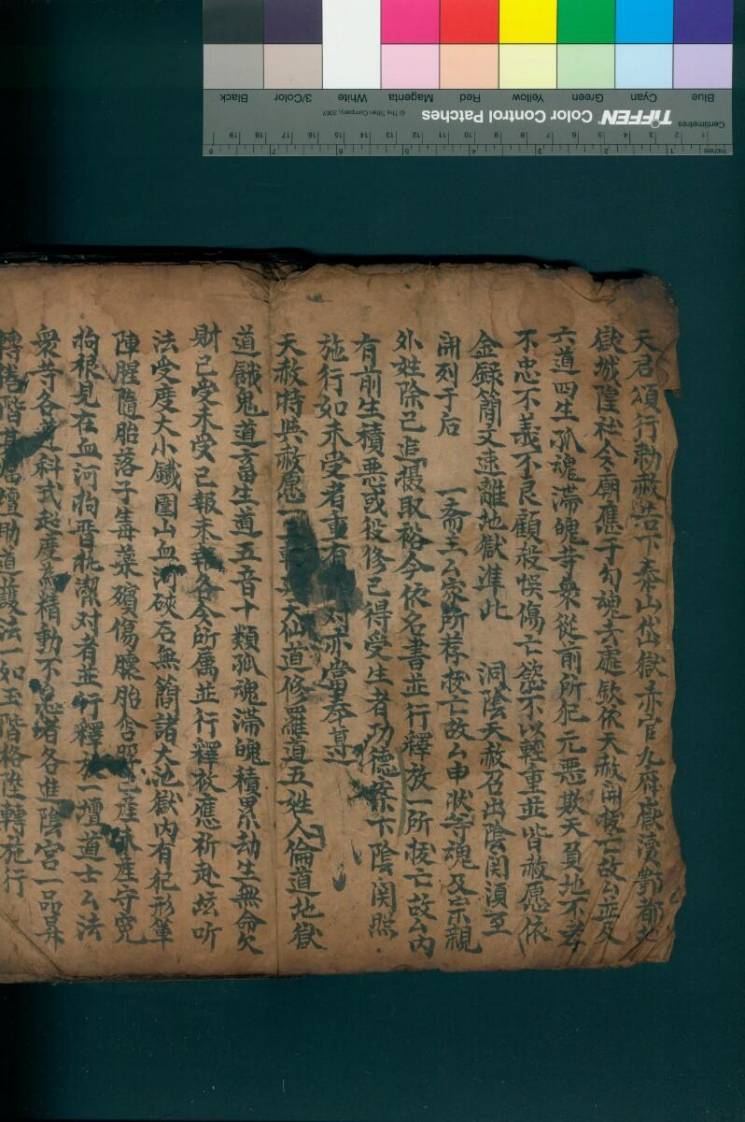 天君頒行勑赦苦下泰山岱獄赤官九府嶽瀆酆都地
獄城隍社令廟應干勾魂去處欽依天赦開拔亡故厶並及
六道四生孤魂滞魄等衆從前所犯元惡欺天負地不孝
不忠不義不良顧殺悮傷亡愆不以輕重並皆赦愿依
金録簡文速離地獄準此 洞陰天赦召出陰関須至
開列于后 一斋主厶家所荐拔亡故厶申狀等魂及宗親
外姓除己追摄取裕今依名書並行釋放一所拔亡故厶内
有前生積惡或役修已得受生者功德案下陰関照
施行如未受者 有 对亦當奉
天赦特與赦愿一 天仙道修羅道五姓人倫道地獄
道餓鬼道畜生道五音十類孤魂滞魄積累劫生無命欠
財已受未受已報未報各令所属並行釋放應祈赴坛听
法受度大小鐵圍山血河硤石無簡諸大池獄内有犯形筆
陣腥隨胎落子毒藥殰傷朦胎含 産 産守寃
拘根見在血河拘 执潔对者並行釋放一壇道士厶法
衆等各 科式起度為精動不怠者各進陰宫一品昇
轉 階 當壇助道護法一如玉階格陞轉施行
TIFFEN Color Control Patches
© The Tiffen Company, 2007
Centimetres
Inches
Blue Cyan Green Yellow Red Magenta White 3/Color Black
1 2 3 4 5 6 7 8 9 10 11 12 13 14 15 16 17 18 19
1 2 3 4 5 6 7 8